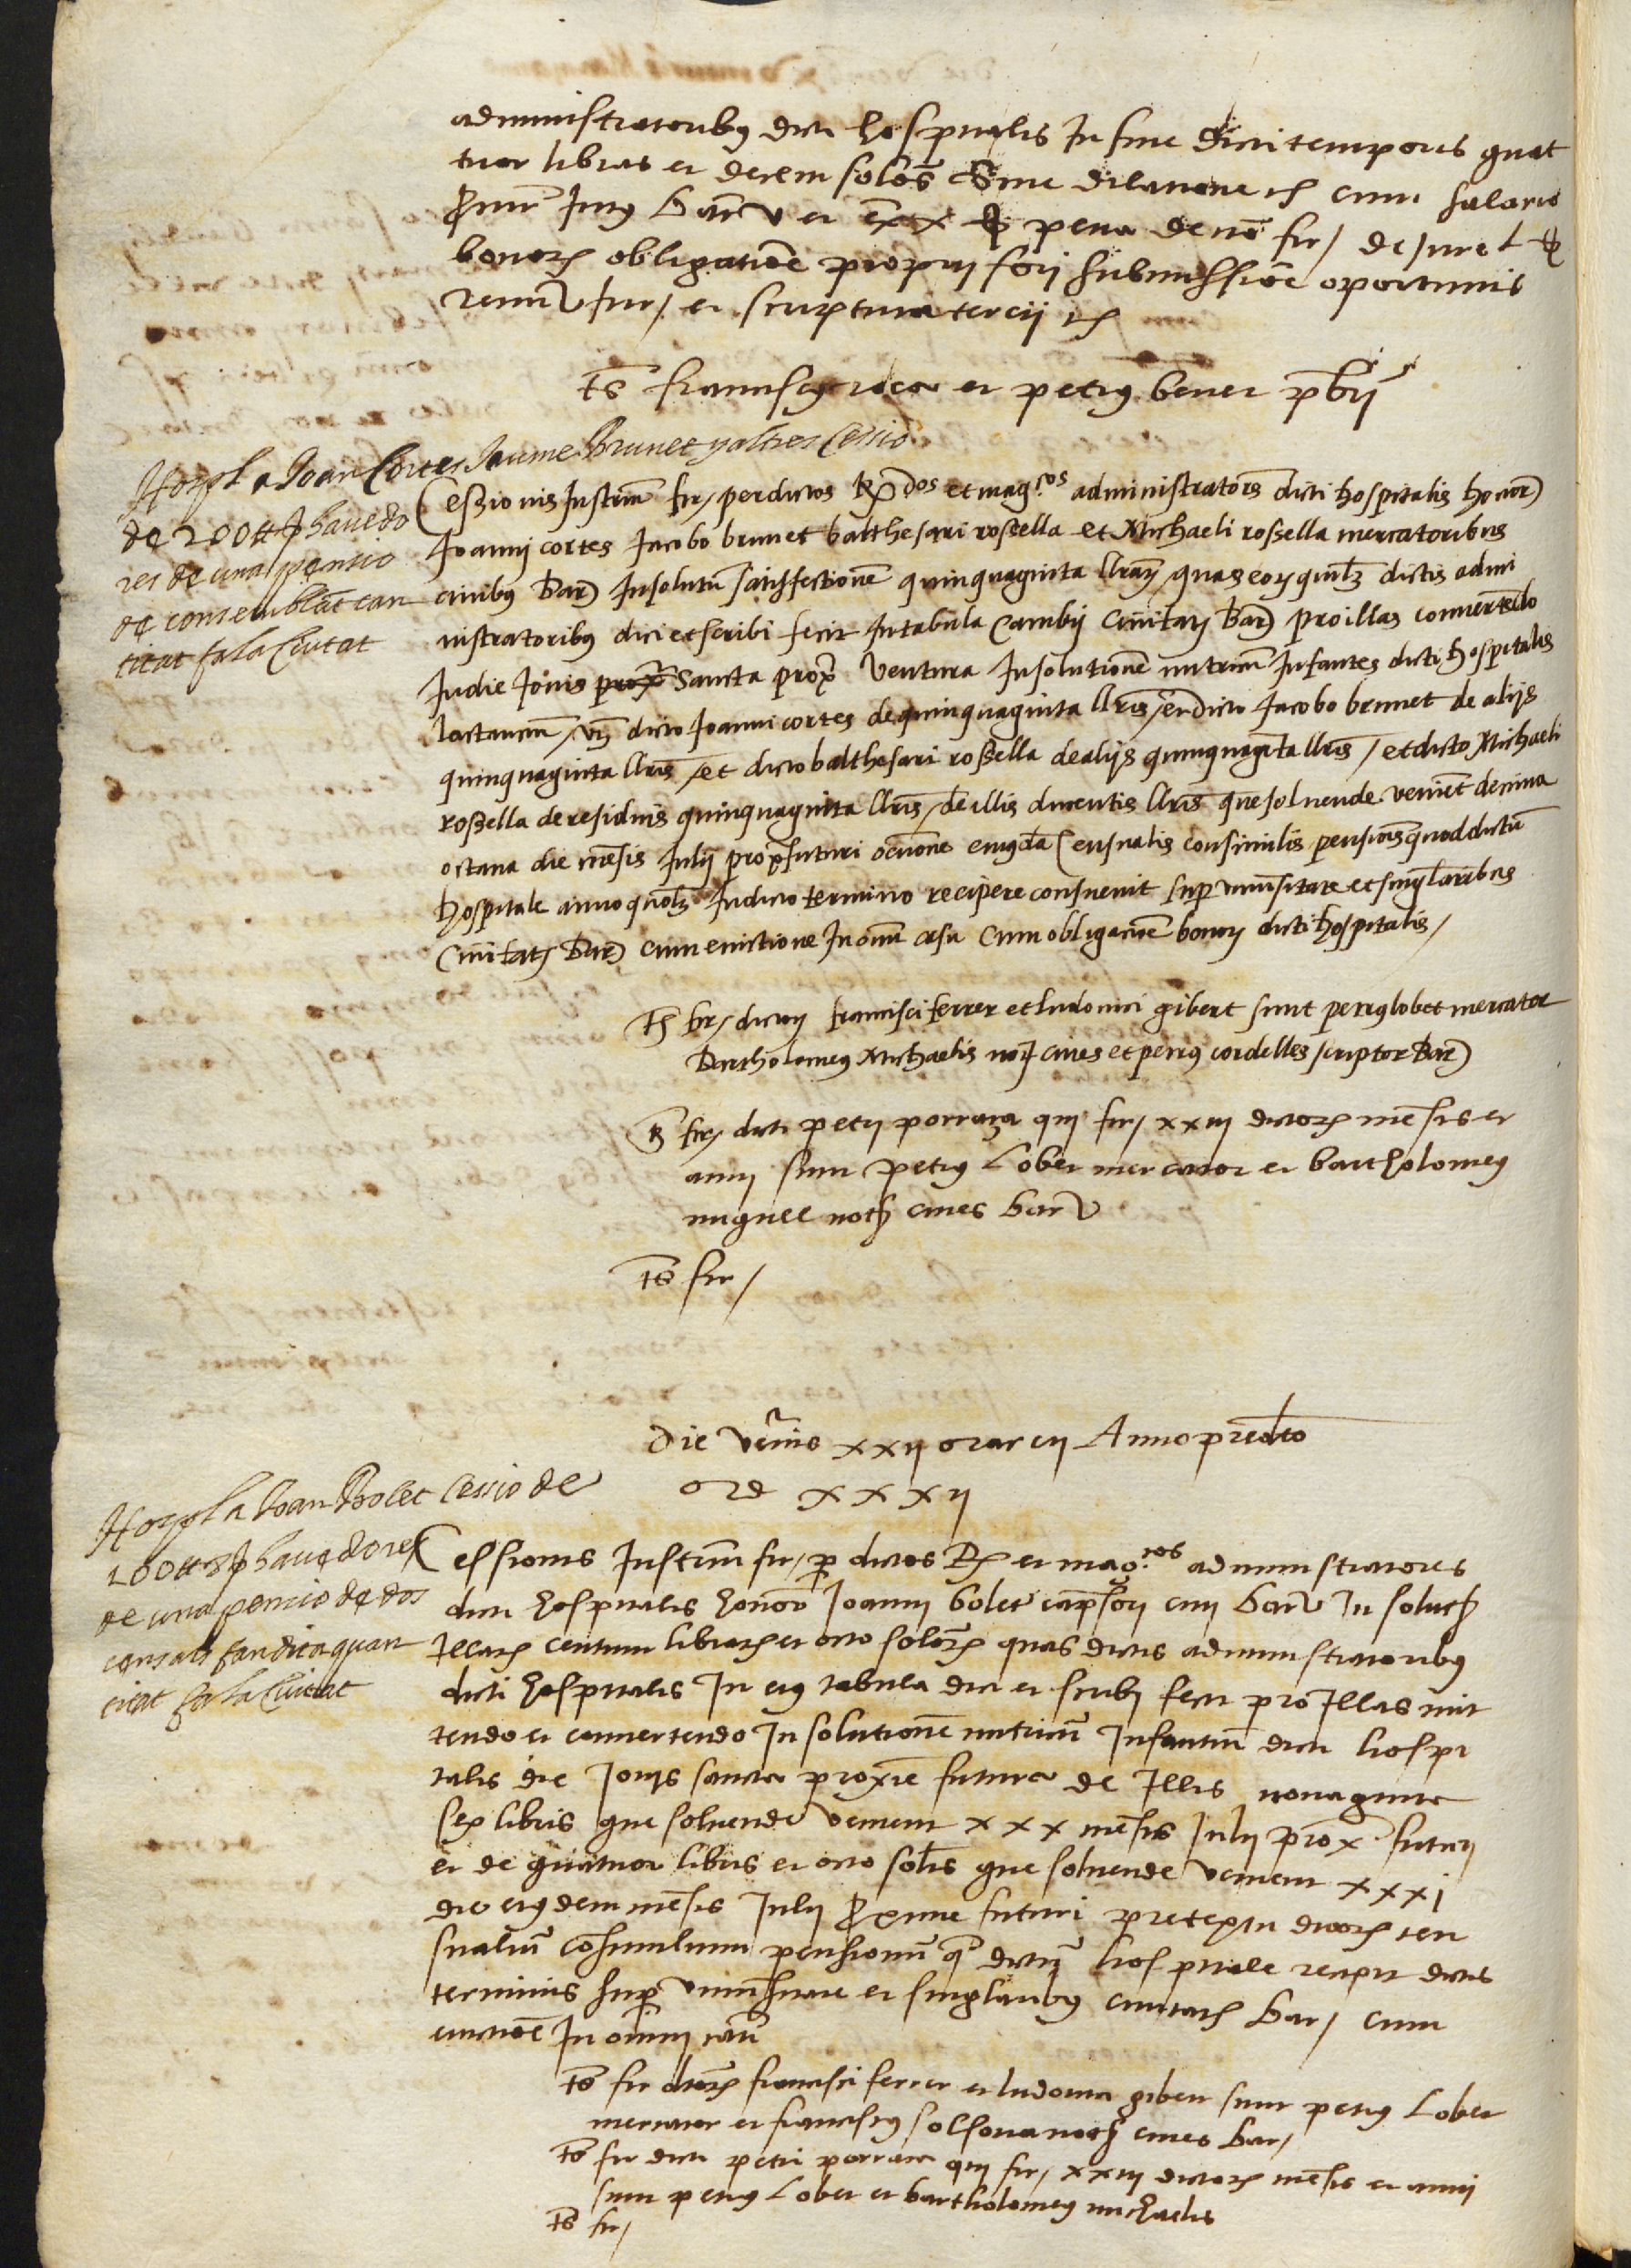 administratoribus dicti hospitalis In fine dicti temporis quat
tuor libras et decem solos Sine dilatione etc cum salario
procur Intus barña v et extra x sub pena de non fir/ de Jure
bonorꝝ obligatione proprij forj submissione oportunis
renun fur/ et scriptura tercij etc
ts̄ franciscus roca et petrus benet pb̄rj
Hospl a Joan Cortes Jaume Brunet y altres cessio
de 200 ℔ ꝑ havedo
res de una pensio
de consemblāt can
titat fa la Ciutat
Cessionis Instrūm fir/ per dictos R.dos et mag.cos administratores dicti hospitalis honor
Joannj cortes Jacobo brunet balthesari rossella et Michaeli rossella mercatoribus
civibus Bar̄ Insolutū satisfectionē quinquaginta llraꝝ quas eoꝝ quilꝫ dictis admi
nistratoribus dici et scribi fecit In tabula Cambij Civitatꝭ Bar̄ pro illas convertēdo
In die Jovis prox̄ Sancta prox̄ Ventura In solutionē nutricum Infantes dicti hospitalis
lactancium / vꝫ dicto Joanni cortes de quinquaginta llris / et dicto Jacobo brunet de alijs
quinquaginta llris / et dicto balthesari rossella de alijs quinquagīta llris / et dicto Michaeli
rossella de residuis quinquaginta llris / de illis ducentis llris que solvende veniēt decima
octava die mēsis Julij prox̄ futuri occone cuiusdā Censualis consimilis pensionis quod dictū
hospitale anno quolꝫ In dicto termino recipere consuevit sup universitate et singlaribus
Civitatꝭ Bar̄ cum evictione In omni casu Cum obligacione bonoꝝ dicti hospitalis /
Ts̄ fir/ dictoꝝ francisci ferrer et ludovici gibert sunt petrus lobet mercator
Bartholomeus Michaelis noꝭ cives et petrus cordelles scriptor Bar̄
Ts̄ fir/ dicti petrj porrassa qui fir/ xxiij dictorꝝ mēsis et
annj sunt petrus Lobet mercator et bartholomeus
miquel notꝭ cives barñ
ts̄ fir /
Die Veneris xxij marcij Anno predicto
M D xxxij
Hospl a Joan Bolet Cessio de
100 ℔ 8 ꝑ havedores
de una pensio de dos
censals fan dita quan
titat fa la Ciutat
Cessionis Instrūm fir/ per dictos R et mag.cos administratores
dicti hospitalis honor Joannj bolet capsorj civj barñ In solutꝭ
Illarꝝ centum librarꝝ et octo solorꝝ quas dictis administratoribus
dicti hospitalis In eius tabula dici et scribj fecit pro Illas mit
tendo et convertendo In solutionē nutricū Infantiū dicti hospi
talis die Jovis sancta proxīe futura de Illis nonaginta
sex libris que solvende veniunt xxx mēsis Julij prox futurj
et de quatuor libris et octo solis que solvende veniunt xxxj
die eiusdem mēsis Julij proxime futuri pretextu duorꝝ cen
sualiū cōsimilium pensionū que dictū hospitale recipit dictis
terminis super universitate et singlaribus civitatꝭ bar/ cum
evictiōe In omnj casu
ts̄ fir dictorꝝ francisci ferrer et ludovici gibert sunt petrus Lobet
mercator et franciscus solsona notꝭ cives bar/
ts̄ fir dicti petri porrassa qui fir/ xxiij dictorꝝ mēsis et annj
sunt petrus Lobet et bartholomeus michaelis
ts̄ fir/